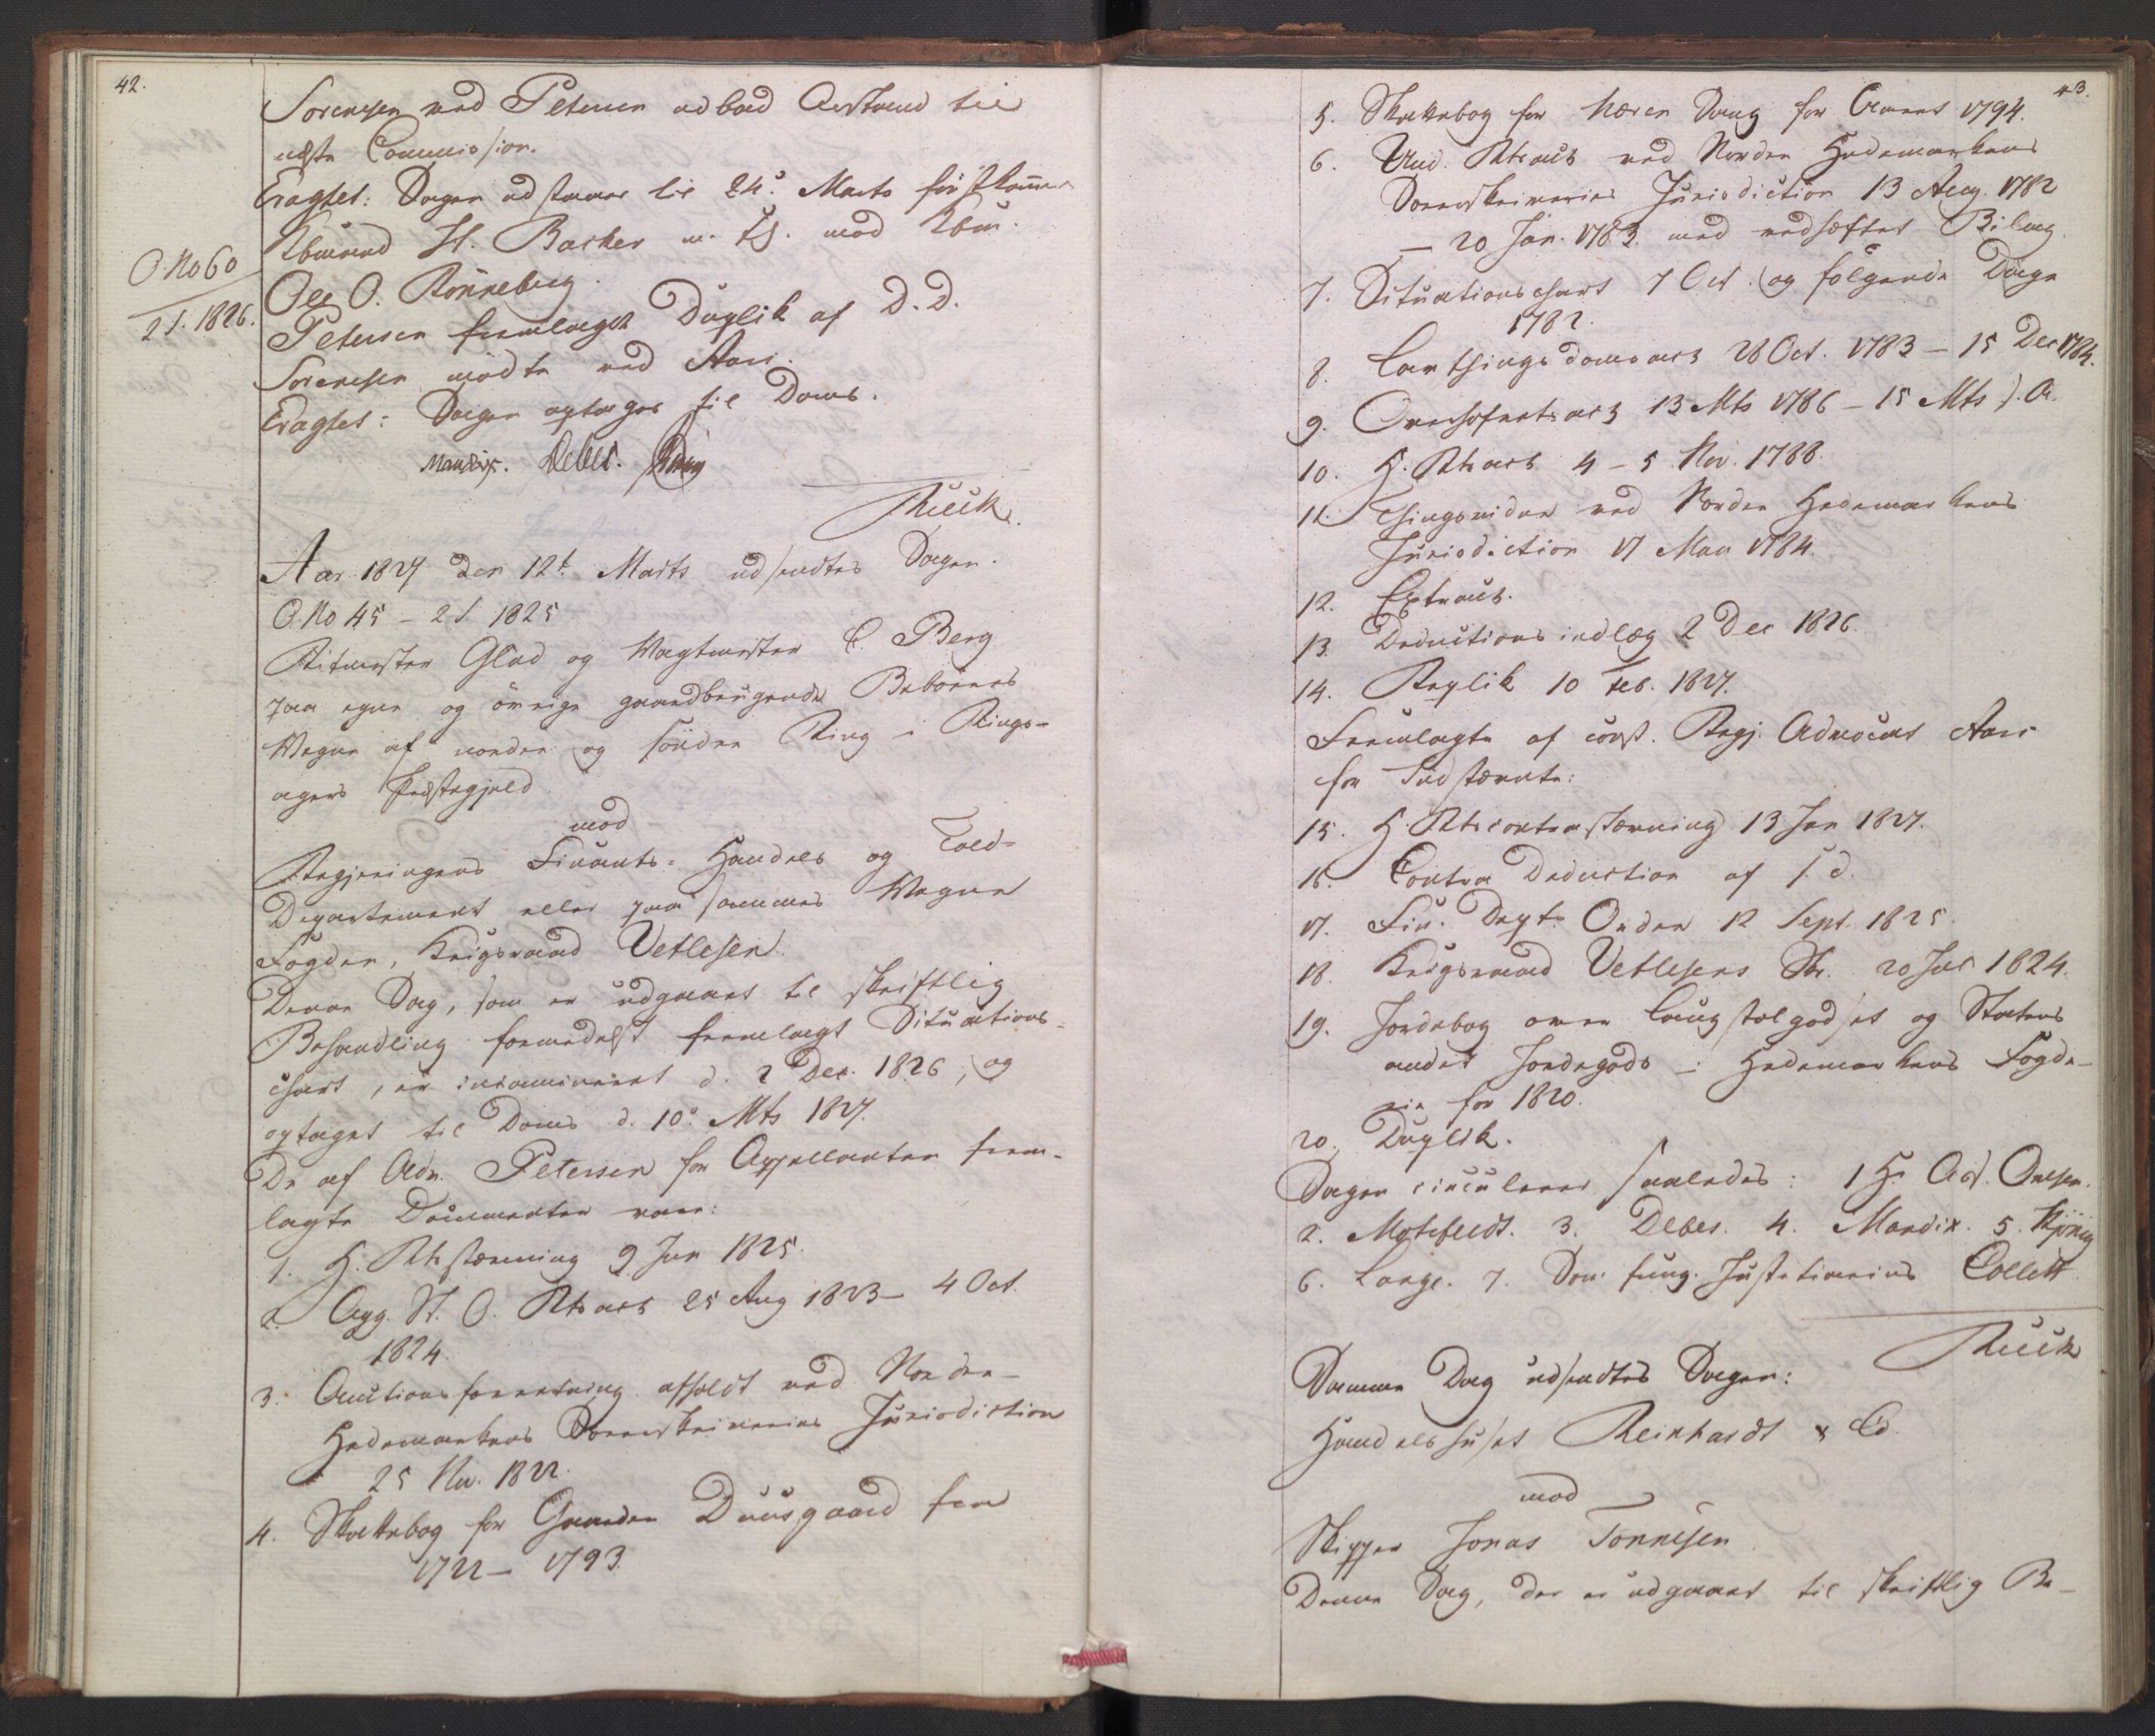 42.
Sorensen ved Petersen udbad Anstand til
næste Session.
Eragtet: Sagen udstaaer til 24de Marts førstkomm.
O. No 60
2 S. 1826.
Kbmand H. Backer m. fl. mod Kbm.
Ole O. Rønneberg.
Petersen fremlagde Duplik af D. D.
Sorensen mødte ved Aars.
Eragtet: Sagen optages til Doms.
Mandix. Debes.
Ruck.
Aar 1827 den 12te Marts udsendtes Sagen.
O. No 45 – 2 S. 1825
Ritmester Glad og Vagtmester C. Berg
paa egne og øvrige gaardbrugende Beboeres
Vegne af nordre og søndre Ring i Rings-
agers Præstegjeld
mod
Regjeringens Finants- Handels og Told-
Departement eller paa sammes Vegne
Fogden, Krigsraad Vetlesen.
Denne Sag, som er udgaaet til skriftlig
Behandling formedelst fremlagt Situations-
chart, er incamineret d. 2 Dec. 1826, og
optaget til Doms d. 10de Mts 1827.
De af Adv. Petersen for Appellanten frem-
lagte Documenter vare:
1. H. Rtsstævning 9 Jun 1825.
2. Agg. St. O. Rtsact 25 Aug 1823 – 4 Oct.
1824.
3. Auctionsforretning afholdt ved Nordre
Hedemarkens Sorenskriveries Jurisdiction
25 Nov. 1822.
4. Skattebog for Gaarden Duusgaard fra
1722 – 1793.
43.
5. Skattebog for Aaret 1794.
6. Und. Rtsact ved Nordre Hedemarkens
Sorenskriveries Jurisdiction 13 Aug. 1782
– 20 Jan. 1783. med vedheftet Bilag.
7. Situationschart 7 Oct. og følgende Dage
1782.
8. Laugthingsdomsact 28 Oct. 1783 – 15 Dec 1784.
9. Overhofretsact 13 Mts 1786 – 15 Mts s. A.
10. H. Rtsact 4 – 5 Nov. 1788.
11. Thingsvidne ved Nordre Hedemarkens
Jurisdiction 17 Mai 1784.
12. Extract.
13. Deductionsindlæg 2 Dec 1826.
14. Replik 10 Feb. 1827.
Fremlagte af const. Regj. Advocat Aars
for Indstævnte:
15. H. Rtscontrastævning 13 Jan 1827.
16. Contra Deduction af s. d.
17. Fin. Dept. Ordre 12 Sept. 1825.
18. Krigsraad Vetlesens Skr. 20 Jul 1824.
19. Jordebog over Laugstolgodset og Statens
andet Jordegods i Hedemarkens Fogde-
rie for 1820.
20. Duplik.
Sagen circulerer saaledes: 1 Hr Ass. Omsen.
2. Motzfeldt. 3. Debes. 4. Mandix. 5.
6. Lange. 7. Den fung. Justitiarius Collett.
Ruck
Samme Dag udsendtes Sagen:
Handelshuset Reinhardt & Co.
mod
Skipper Jonas Tønnesen
Denne Sag, der er udgaaet til skriftlig Be-